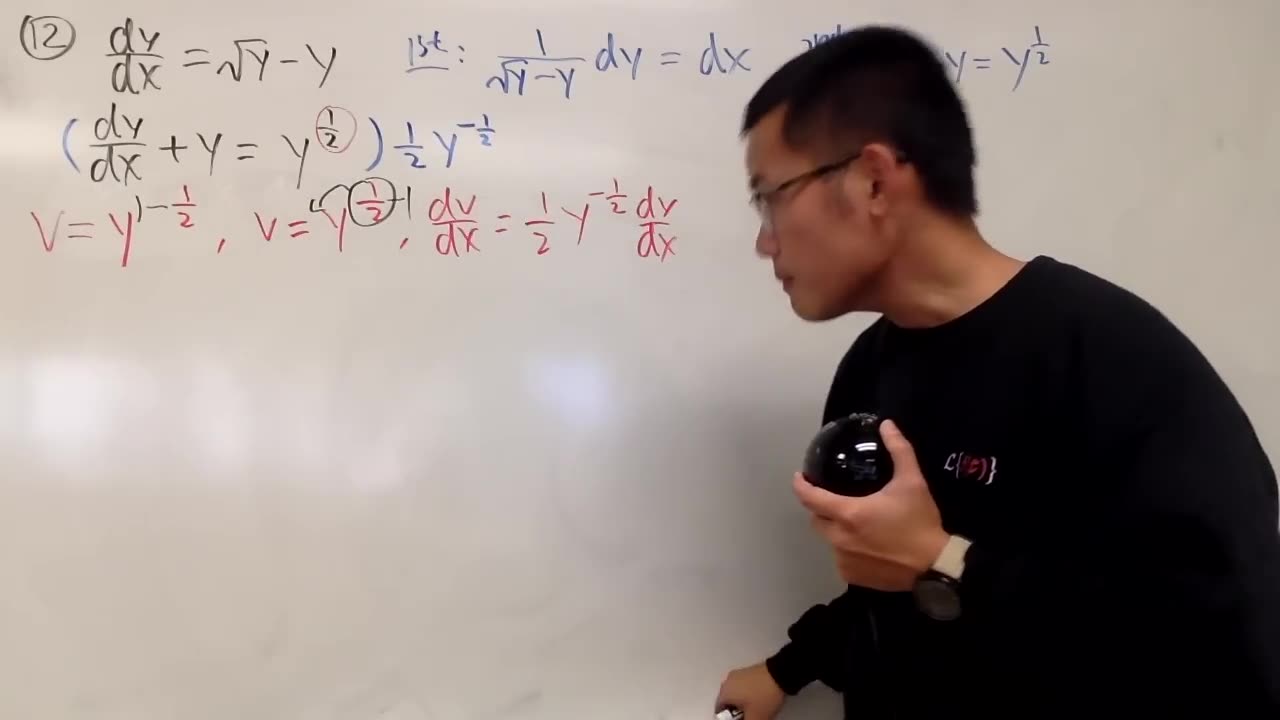 ⑫ dy/dx = √y - y 1st: 1/(√y - y) dy = dx 2nd y = y^(1/2)
(dy/dx + y = y^(1/2)) 1/2 y^(-1/2)
v = y^(1-1/2), v = y^(1/2)-1, dv/dx = 1/2 y^(-1/2) dy/dx